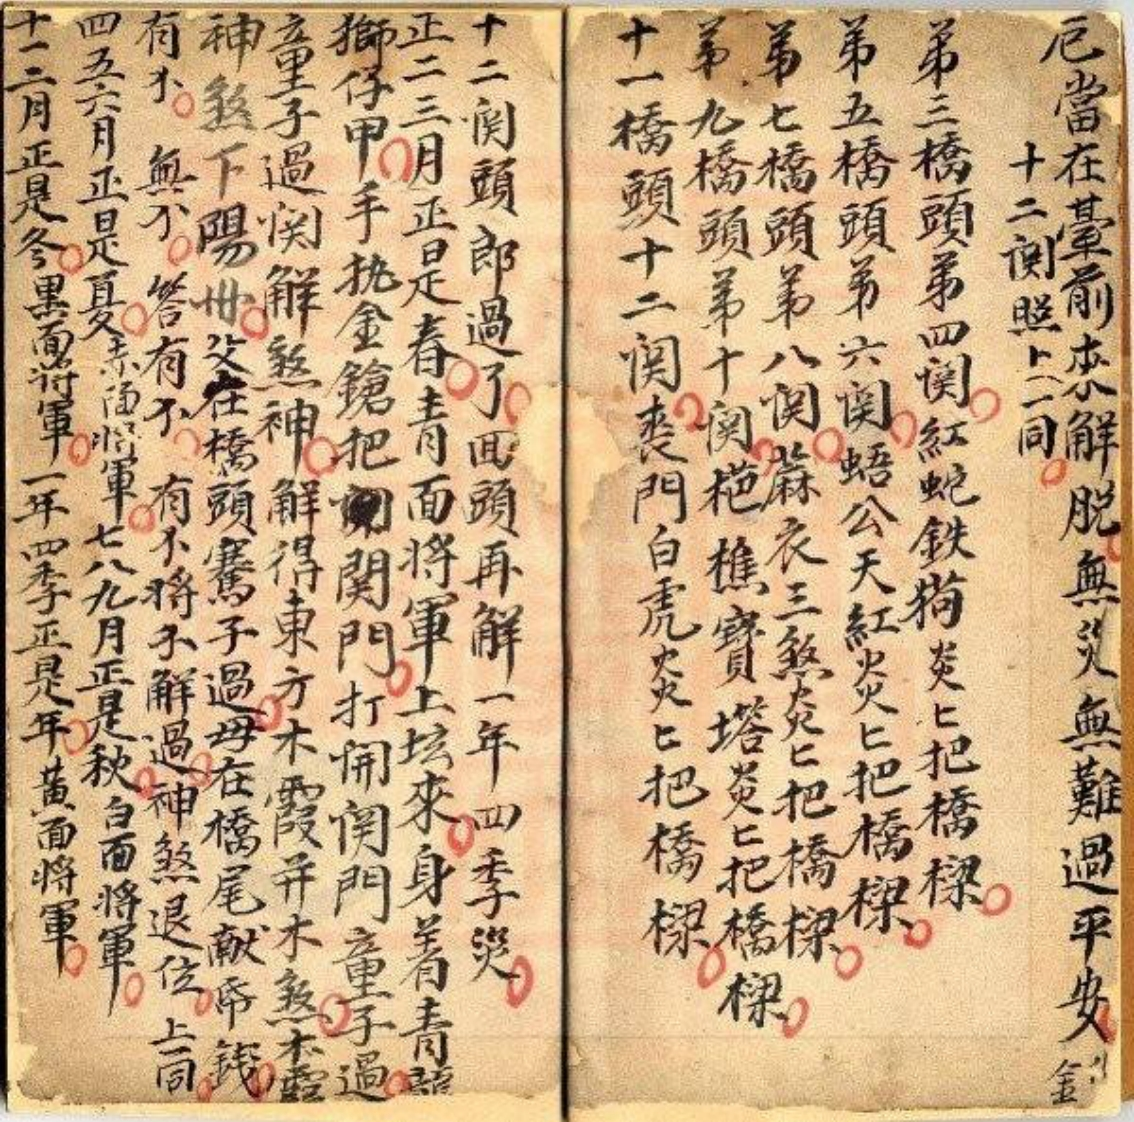 厄當在臺前來解脫無災無難過平安
十二関照上仝同
第三橋頭第四関紅蛇鉄狗炎〻把橋樑
第五橋頭第六関蜈公天紅炎〻把橋樑
第七橋頭第八関蔴衣三煞炎〻把橋樑
第九橋頭第十関樵寶塔炎〻把橋樑
十一橋頭十二関喪門白虎炎〻把橋樑
十二関頭郎過了囬頭再解一年四季災
正二三月正是春青面将軍上坛來身着青
獅仔甲手执金鎗把関門打開関門童子過
童子過関解煞神解得東方木霞并木煞木
神煞下陽州父在橋頭騫子過母在橋尾献帋錢
有不無不答有不有不将不解過神煞退位上仝同
四五六月正是夏赤面将軍七八九月正是秋白面将軍
十一二月正是冬黒面将軍一年四季正是年黃面将軍